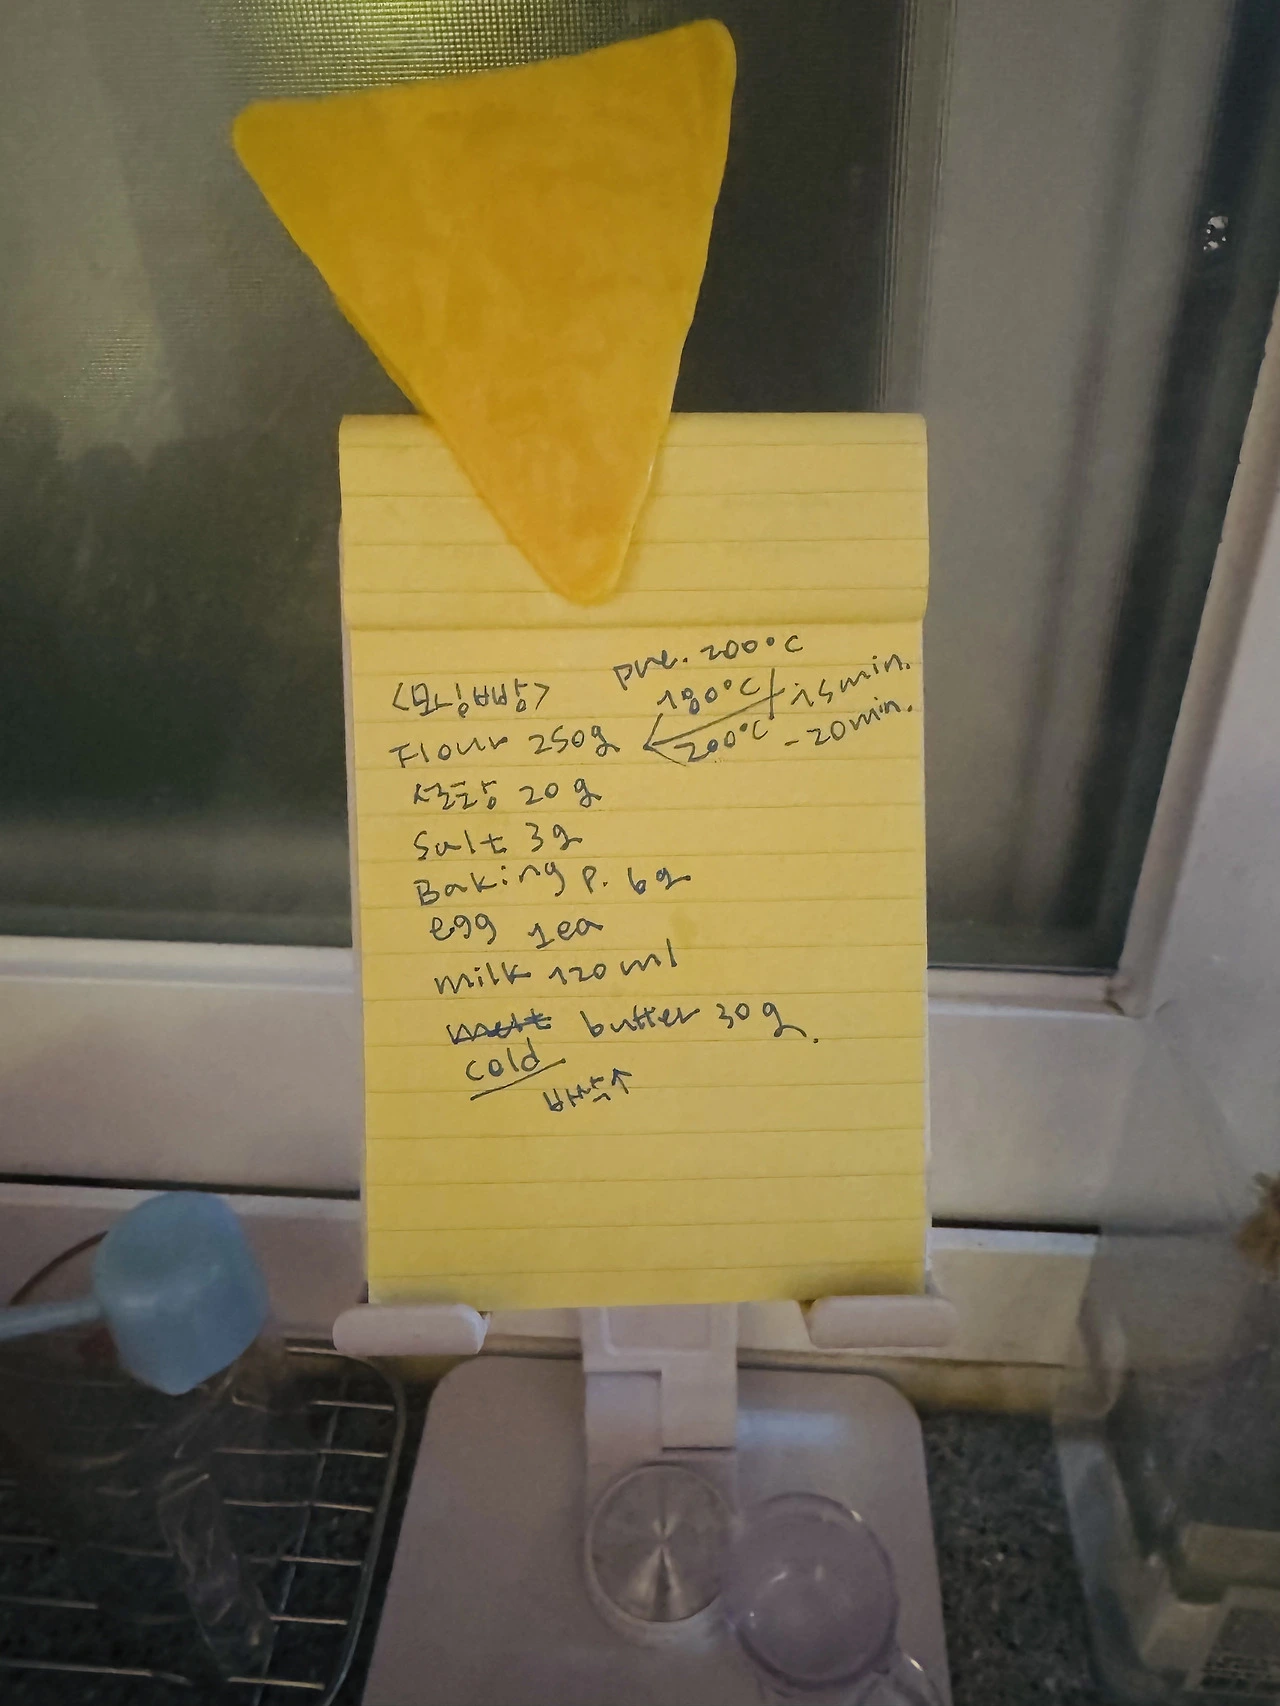 pre. 200°C
<모닝빵>
180°C 15min.
Flour 250g
200°C -20min.
설탕 20g
Salt 3g
Baking P. 6g
egg 1ea
milk 120ml
melt butter 30g.
cold
바삭↑